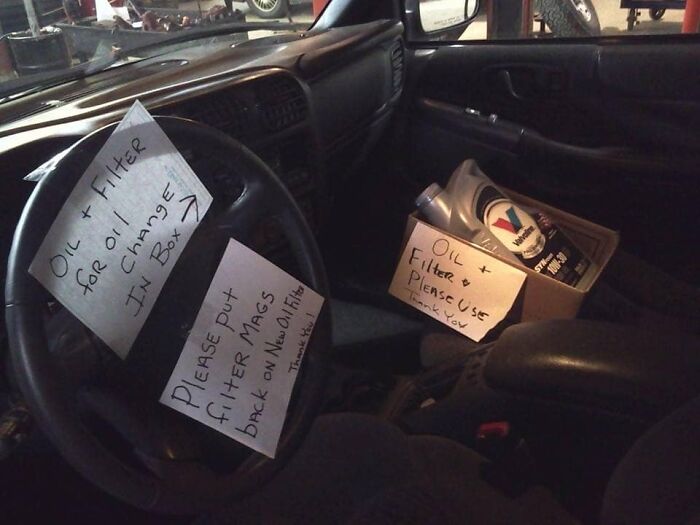 OIL + FILTER
FOR OIL
CHANGE
IN BOX
PLEASE PUT
FILTER MAGS
BACK ON NEW OIL FILTER
THANK YOU!
OIL +
FILTER +
PLEASE USE
THANK YOU
Valvoline
SYN
10W-30